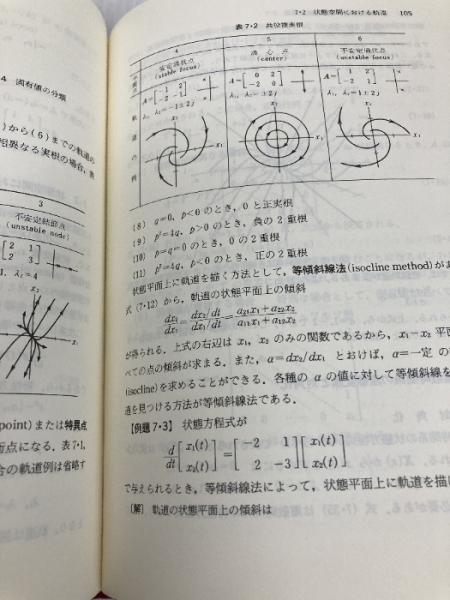 7・2 状態空間における軌道 105
表7・2 共役複素根
4 5 6
安定渦状点 渦心点 不安定渦状点
(stable focus) (center) (unstable focus)
A=[-1 2 -2 -1] A=[0 2 -2 0] A=[1 2 -2 1]
λ₁, λ₂=-1±2j λ₁, λ₂=±2j λ₁, λ₂=1±2j
軌道の例
x₁ x₁ x₁
(8) q=0, p<0 のとき, 0 と正実根
(9) p²=4q, p>0 のとき, 負の 2 重根
(10) p=q=0 のとき, 0 の 2 重根
(11) p²=4q, p<0 のとき, 正の 2 重根
状態平面上に軌道を描く方法として, 等傾斜線法(isocline method)があ
式 (7・12) から, 軌道の状態平面上の傾斜
dx₂/dx₁ = dx₂/dt / dx₁/dt = a₂₁x₁+a₂₂x₂ / a₁₁x₁+a₁₂x₂
が得られる. 上式の右辺は x₁, x₂ のみの関数であるから, x₁-x₂ 平面
べての点の傾斜が求まる. また, α=dx₂/dx₁ とおけば, α=一定 の
(isocline)を求めることができる. 各種の α の値に対して等傾斜線を
道を見つける方法が等傾斜線法である.
【例題 7・3】 状態方程式が
d/dt [x₁(t) x₂(t)] = [-2 1 2 -3] [x₁(t) x₂(t)]
で与えられるとき, 等傾斜線法によって, 状態平面上に軌道を描け
〔解〕 軌道の状態平面上の傾斜は
4 固有値の分類
)から(6)までの軌道の
相異なる実根の場合,
3
不安定結節点
(unstable node)
2 1
2 3
λ₂=4
x₁
point) または特異点
点になる. 表7・1,
合の軌道例は省略す